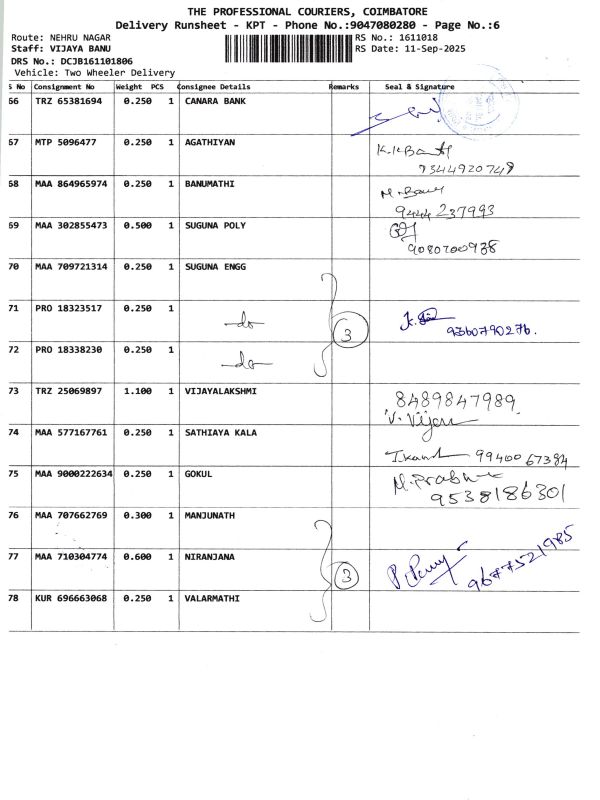 THE PROFESSIONAL COURIERS, COIMBATORE
Delivery Runsheet - KPT - Phone No.:9047080280 - Page No.:6
Route: NEHRU NAGAR
RS No.: 1611018
Staff: VIJAYA BANU
RS Date: 11-Sep-2025
DRS No.: DCJB161101806
Vehicle: Two Wheeler Delivery
S No Consignment No Weight PCS Consignee Details Remarks Seal & Signature
66 TRZ 65381694 0.250 1 CANARA BANK
67 MTP 5096477 0.250 1 AGATHIYAN
9344920748
68 MAA 864965974 0.250 1 BANUMATHI
9444 237993
69 MAA 302855473 0.500 1 SUGUNA POLY
9080700938
70 MAA 709721314 0.250 1 SUGUNA ENGG
71 PRO 18323517 0.250 1 -do- 3 9360790276.
72 PRO 18338230 0.250 1 -do-
73 TRZ 25069897 1.100 1 VIJAYALAKSHMI 8489847989
74 MAA 577167761 0.250 1 SATHIAYA KALA
99400 67384
75 MAA 9000222634 0.250 1 GOKUL M. Prabhu
9538186301
76 MAA 707662769 0.300 1 MANJUNATH
77 MAA 710304774 0.600 1 NIRANJANA 3 9677521985
78 KUR 696663068 0.250 1 VALARMATHI